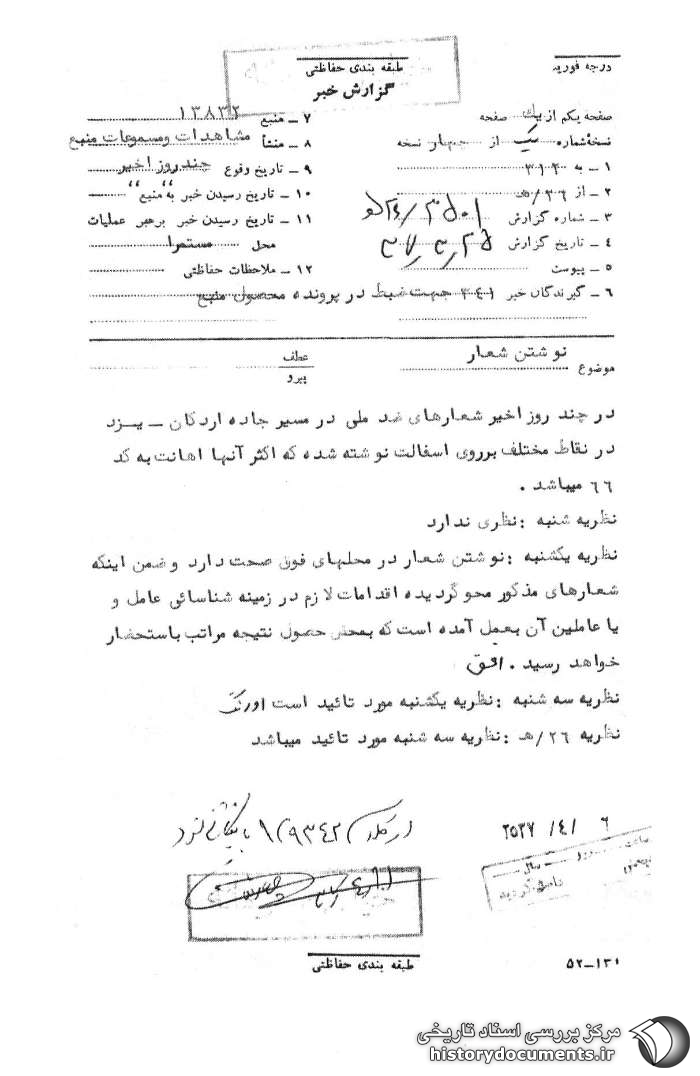 درجه فوریه
طبقه بندی حفاظتی
گزارش خبر
صفحه یکم از یک صفحه
نسخه شماره یک از چهار نسخه
۱ ـ به ۳۱۲
۲ ـ از ۲۶/هـ
۳ ـ شماره گزارش
۴ ـ تاریخ گزارش ۳۷/۳/۲۵
۵ ـ پیوست
۶ ـ گیرندگان خبر ۳۴۱ جهت ضبط در پرونده محصول منبع
۷ ـ منبع ۱۳۸۳۲
۸ ـ منشأ مشاهدات ومسموعات منبع
۹ ـ تاریخ وقوع چند روز اخیر
۱۰ ـ تاریخ رسیدن خبر به "منبع" "
۱۱ ـ تاریخ رسیدن خبر برهبر عملیات
محل مستمرا
۱۲ ـ ملاحظات حفاظتی
موضوع نوشتن شعار
عطف
پیرو
در چند روز اخیر شعارهای ضد ملی در مسیر جاده اردکان ـ یـزد
در نقاط مختلف برروی اسفالت نوشته شده که اکثر آنها اهانت به کد
۶۶ میباشد .
نظریه شنبه : نظری ندارد
نظریه یکشنبه : نوشتن شعار در محلهای فوق صحت دارد و ضمن اینکه
شعارهای مذکور محو گردیده اقدامات لازم در زمینه شناسائی عامل و
یا عاملین آن بعمل آمده است که بمحض حصول نتیجه مراتب باستحضار
خواهد رسید . افق
نظریه سه شنبه : نظریه یکشنبه مورد تائید است اورنگ
نظریه ۲۶/هـ : نظریه سه شنبه مورد تائید میباشد
بایگانی شود
۲۵۳۷ /۴/ ۶
طبقه بندی حفاظتی
۵۲ـ۱۳۱
مرکز بررسی اسناد تاریخی
historydocuments.ir